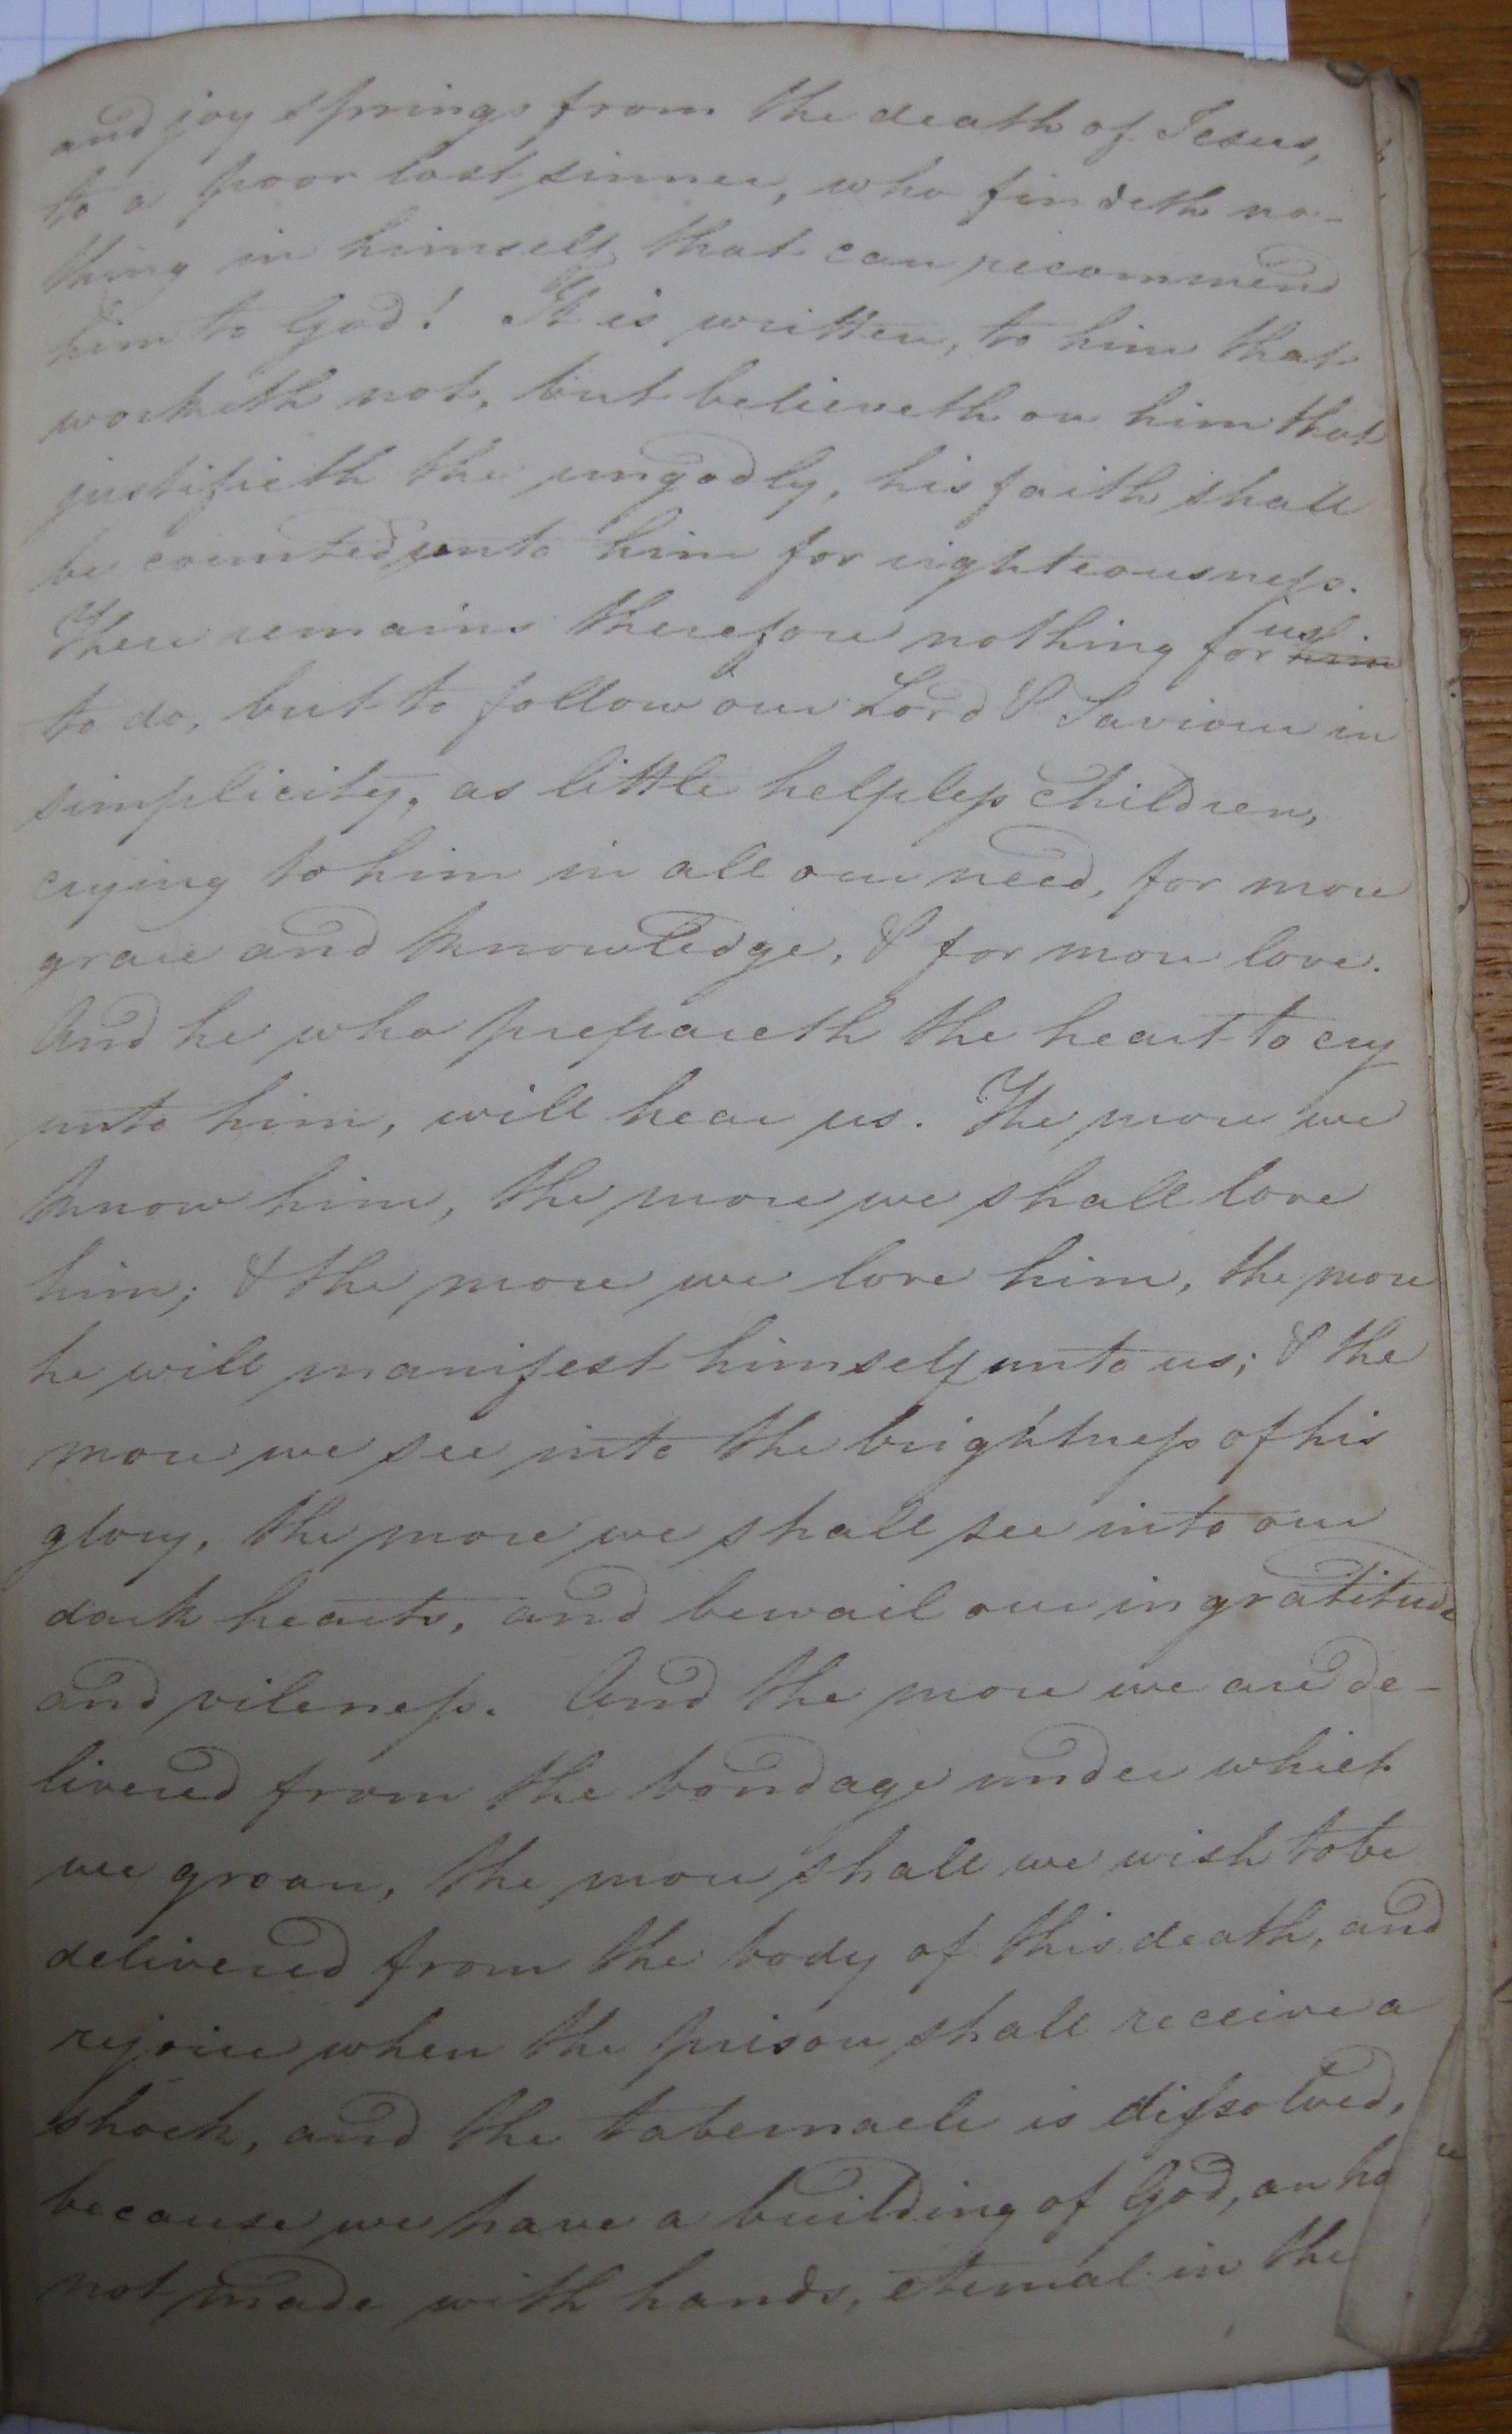 and joy springs from the death of Jesus,
to a poor lost sinner, who findeth no-
thing in himself that can recommend
him to God! It is written, to him that
worketh not, but believeth on him that
justifieth the ungodly, his faith shall
be counted unto him for righteousness.
There remains therefore nothing for him us
to do, but to follow our Lord & Saviour in
simplicity, as little helpless children,
crying to him in all our need, for more
grace and knowledge, & for more love.
And he who prepareth the heart to cry
unto him, will hear us. The more we
know him, the more we shall love
him; & the more we love him, the more
he will manifest himself unto us; & the
more we see into the brightness of his
glory, the more we shall see into our
dark hearts, and bewail our ingratitude
and vileness. And the more we are de-
livered from the bondage under which
we groan, the more shall we wish to be
delivered from the body of this death, and
rejoice when the prison shall receive a
shock, and the tabernacle is dissolved,
because we have a building of God, an ho
not made with hands, eternal in the